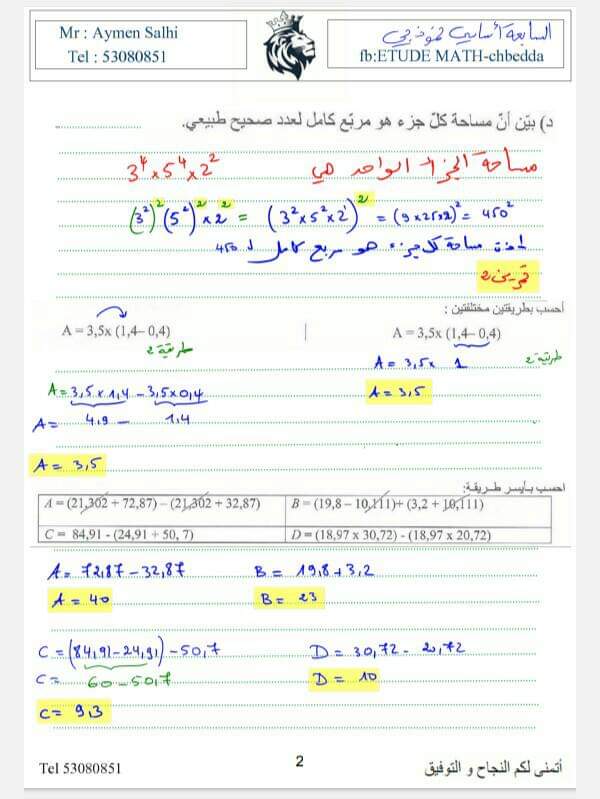 Mr : Aymen Salhi
Tel : 53080851
السابعة أساسي نموذجي
fb:ETUDE MATH-chbedda
د) بيّن أنّ مساحة كلّ جزء هو مربّع كامل لعدد صحيح طبيعي.
مساحة الجزء الواحد هي 3⁴ x 5⁴ x 2²
(3²)² (5²)² x 2² = (3² x 5² x 2)² = (9 x 25 x 2)² = 450²
إذن مساحة كل جزء هو مربع كامل لـ 450
تمرين 2
أحسب بطريقتين مختلفتين :
A = 3,5x (1,4– 0,4)
A = 3,5x (1,4– 0,4)
طريقة 2
طريقة 2
A = 3,5 x 1
A = 3,5 x 1,4 - 3,5 x 0,4
A = 3,5
A = 4,9 - 1,4
A = 3,5
احسب بأيسر طريقة:
A = (21,302 + 72,87) – (21,302 + 32,87)
B = (19,8 – 10,111)+ (3,2 + 10,111)
C = 84,91 - (24,91 + 50, 7)
D = (18,97 x 30,72) - (18,97 x 20,72)
A = 72,87 - 32,87
B = 19,8 + 3,2
A = 40
B = 23
C = (84,91 - 24,91) - 50,7
D = 30,72 - 20,72
C = 60 - 50,7
D = 10
C = 9,3
Tel 53080851
2
أتمنى لكم النجاح و التوفيق